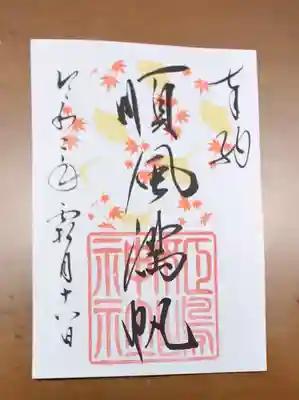 奉納
順風満帆
神社
令和二年 霜月十八日